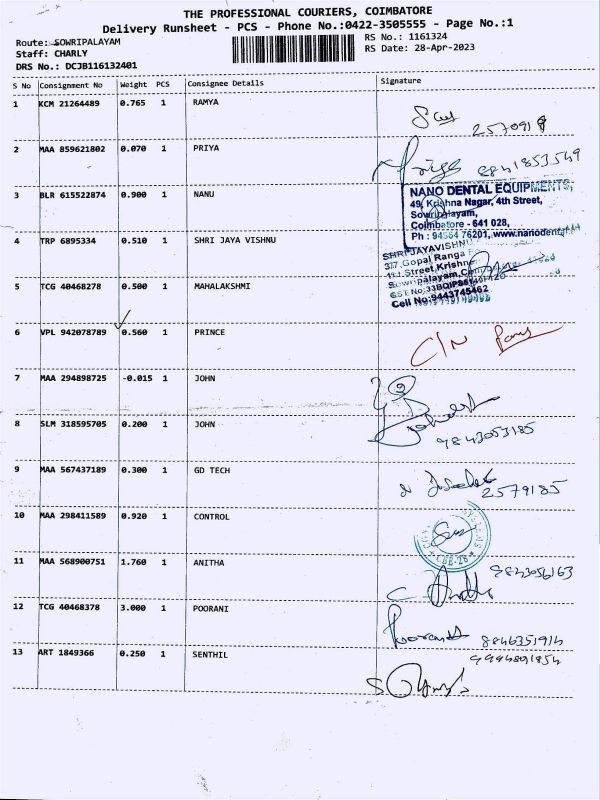 THE PROFESSIONAL COURIERS, COIMBATORE
Delivery Runsheet - PCS - Phone No.:0422-3505555 - Page No.:1
Route: SOWRIPALAYAM
RS No.: 1161324
Staff: CHARLY
RS Date: 28-Apr-2023
DRS No.: DCJB116132401
S No Consignment No Weight PCS Consignee Details Signature
1 KCM 21264489 0.765 1 RAMYA
2570918
2 MAA 859621802 0.070 1 PRIYA
Priya 9841853549
3 BLR 615522874 0.900 1 NANU
NANO DENTAL EQUIPMENTS,
49, Krishna Nagar, 4th Street,
Sowripalayam,
Coimbatore - 641 028,
76201, www.nanodental
4 TRP 6895334 0.510 1 SHRI JAYA VISHNU
SHRI JAYAVISHNU
Gopal Ranga
Street Krishna
Sowripalayam,
GST No:
Cell No:9443745462
5 TCG 40468278 0.500 1 MAHALAKSHMI
6 VPL 942078789 0.560 1 PRINCE
C/N
7 MAA 294898725 -0.015 1 JOHN
8 SLM 318595705 0.200 1 JOHN
9843053185
9 MAA 567437189 0.300 1 GD TECH
2579185
10 MAA 298411589 0.920 1 CONTROL
CBE-28
11 MAA 568900751 1.760 1 ANITHA
9843056163
12 TCG 40468378 3.000 1 POORANI
Poorani 8846351914
13 ART 1849366 0.250 1 SENTHIL
9994891854